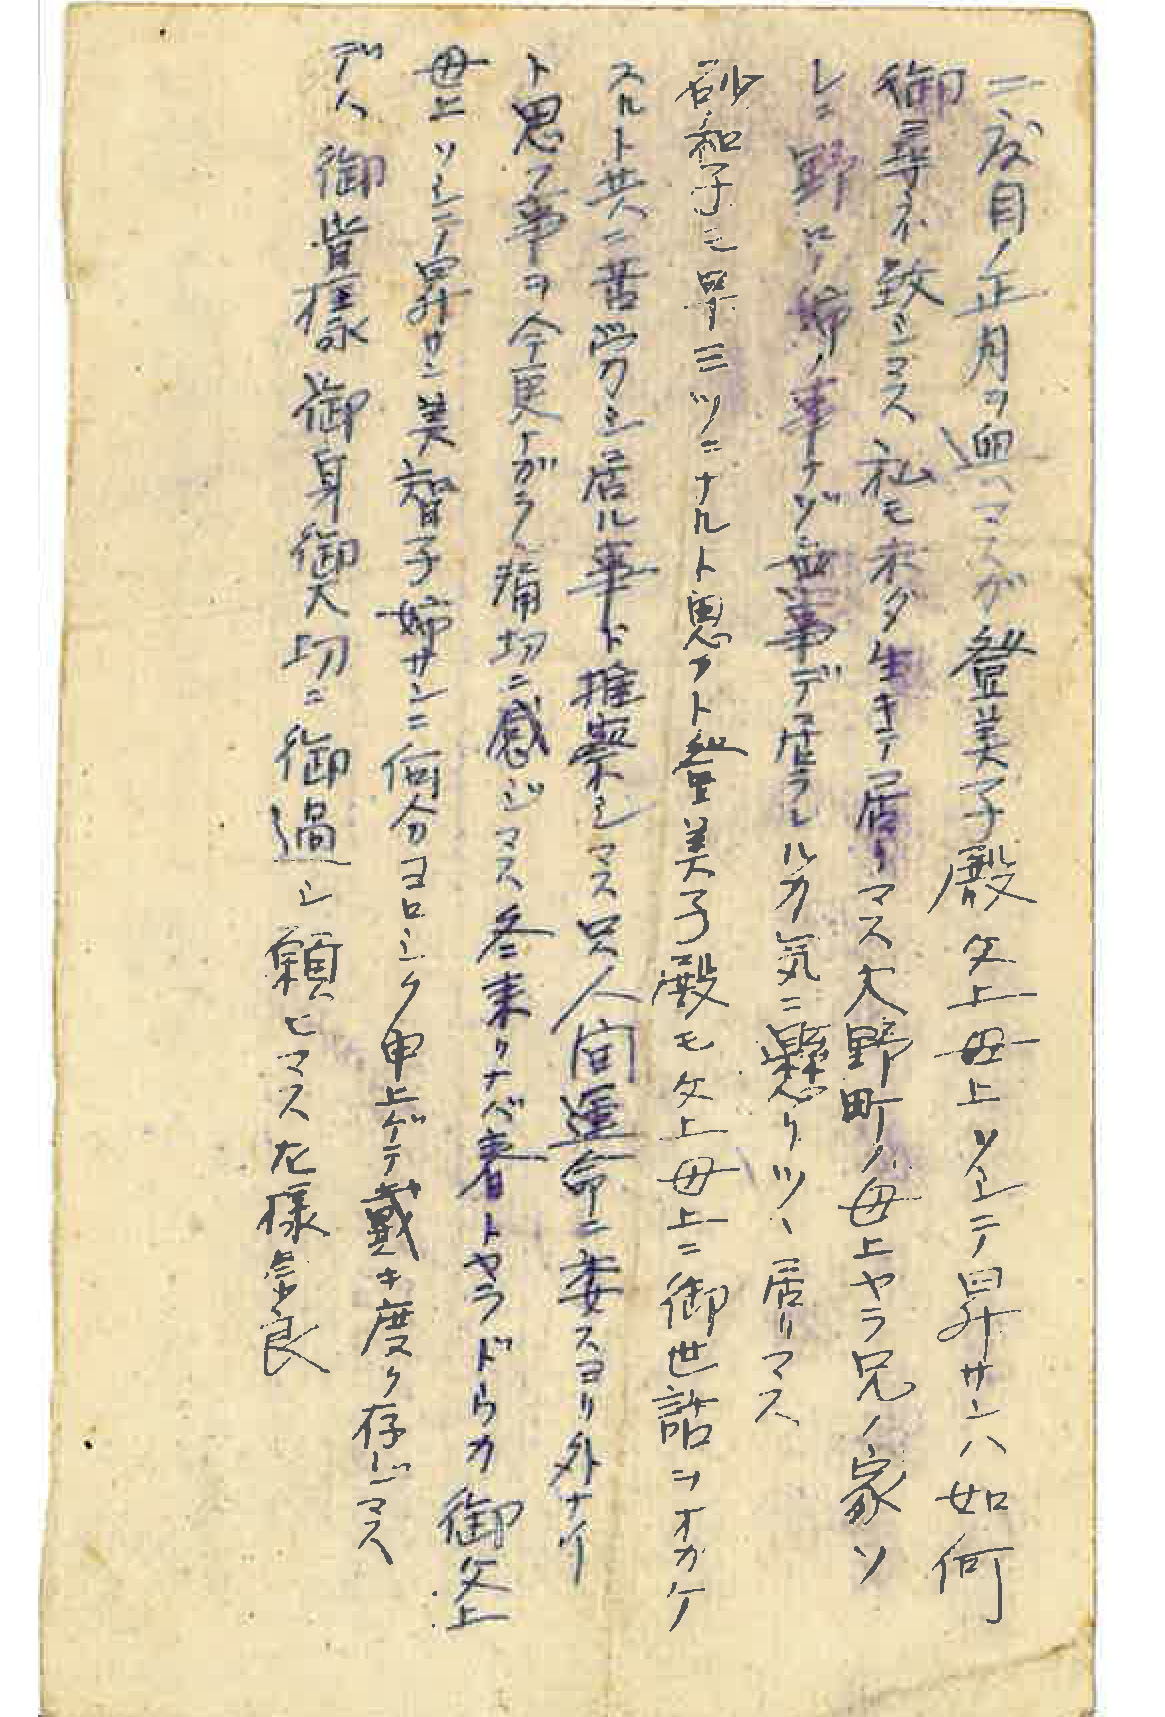 二度目ノ正月ヲ迎ヘマスガ登美子殿父上母上ソシテ昇サンハ如何
御尋ネ致シマス私モ未ダ生キテ居リマス大野町ノ母上ヤラ兄ノ家ソ
レニ野口姉ノ事ナゾ無事デ居ラレルカ気ニ懸リツヽ居リマス
紗和子ニ早三ツニナルト思フト登美子殿モ父上母上ニ御世話ヲオカケ
スルト共ニ苦労シ居ル事ト推察シマス只人間運命ニ委スヨリ外ナイ
ト思フ事ヲ今更ナガラ痛切ニ感ジマス冬来リナバ春トヤラドウカ御父上
母上ソシテ昇サン美智子姉サンニ何分ヨロシク申上ゲテ戴キ度ク存ジマス
デハ御皆様御身御大切ニ御過シ願ヒマス左様奈良